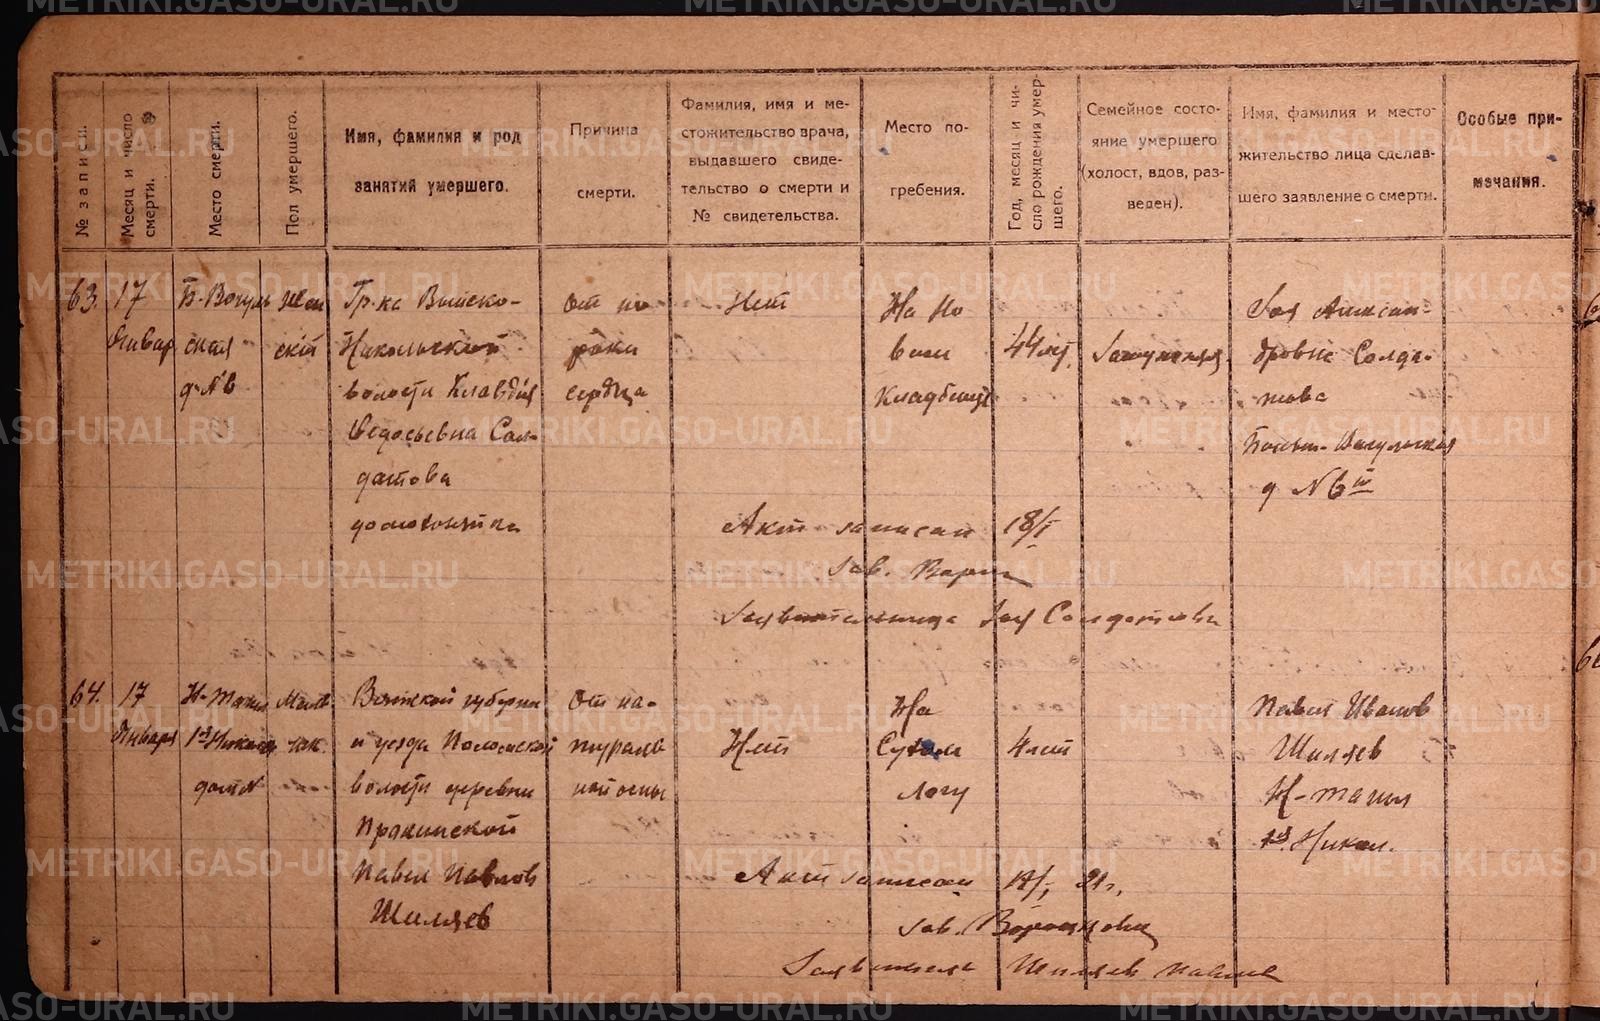 № записи.
Месяц и число смерти.
Место смерти.
Пол умершего.
Имя, фамилия и род
занятий умершего.
Причина
смерти.
Фамилия, имя и ме-
стожительство врача,
выдавшего свиде-
тельство о смерти и
№ свидетельства.
Место по-
гребения.
Год, месяц и чи-
сло рождения умер
шего.
Семейное состо-
яние умершего
(холост, вдов, раз-
веден).
Имя, фамилия и место-
жительство лица сделав-
шего заявление о смерти.
Особые при-
мечания.
63.
17
Январ
Б-Вогуль
ская
д-№6
Жен
ский
Гр.ка Выйско-
Никольской
волости Клавдия
Федосьевна Сол-
датова
домохозяйка
От по
рока
сердца
Нет
На Но
вом
Кладбище
44 лет
Замужняя
Зоя Алексан-
дровна Солда-
това
Больш-Вагульская
д №6
Акт записан 18/I
Зав.
Заявительница Зоя Солдатова
64.
17
Января
Н-Тагил
дом №
Вятской губернии
и уезда
волости деревни
Павел Павлов
Шиляев
От на-
туральной
оспы
Нет
На
Сухом
логу
4 лет
Павел Иванов
Шиляев
Н-Тагил
Никол.
Акт записан
21 г.
Зав. Воронцова
METRIKI.GASO-URAL.RU